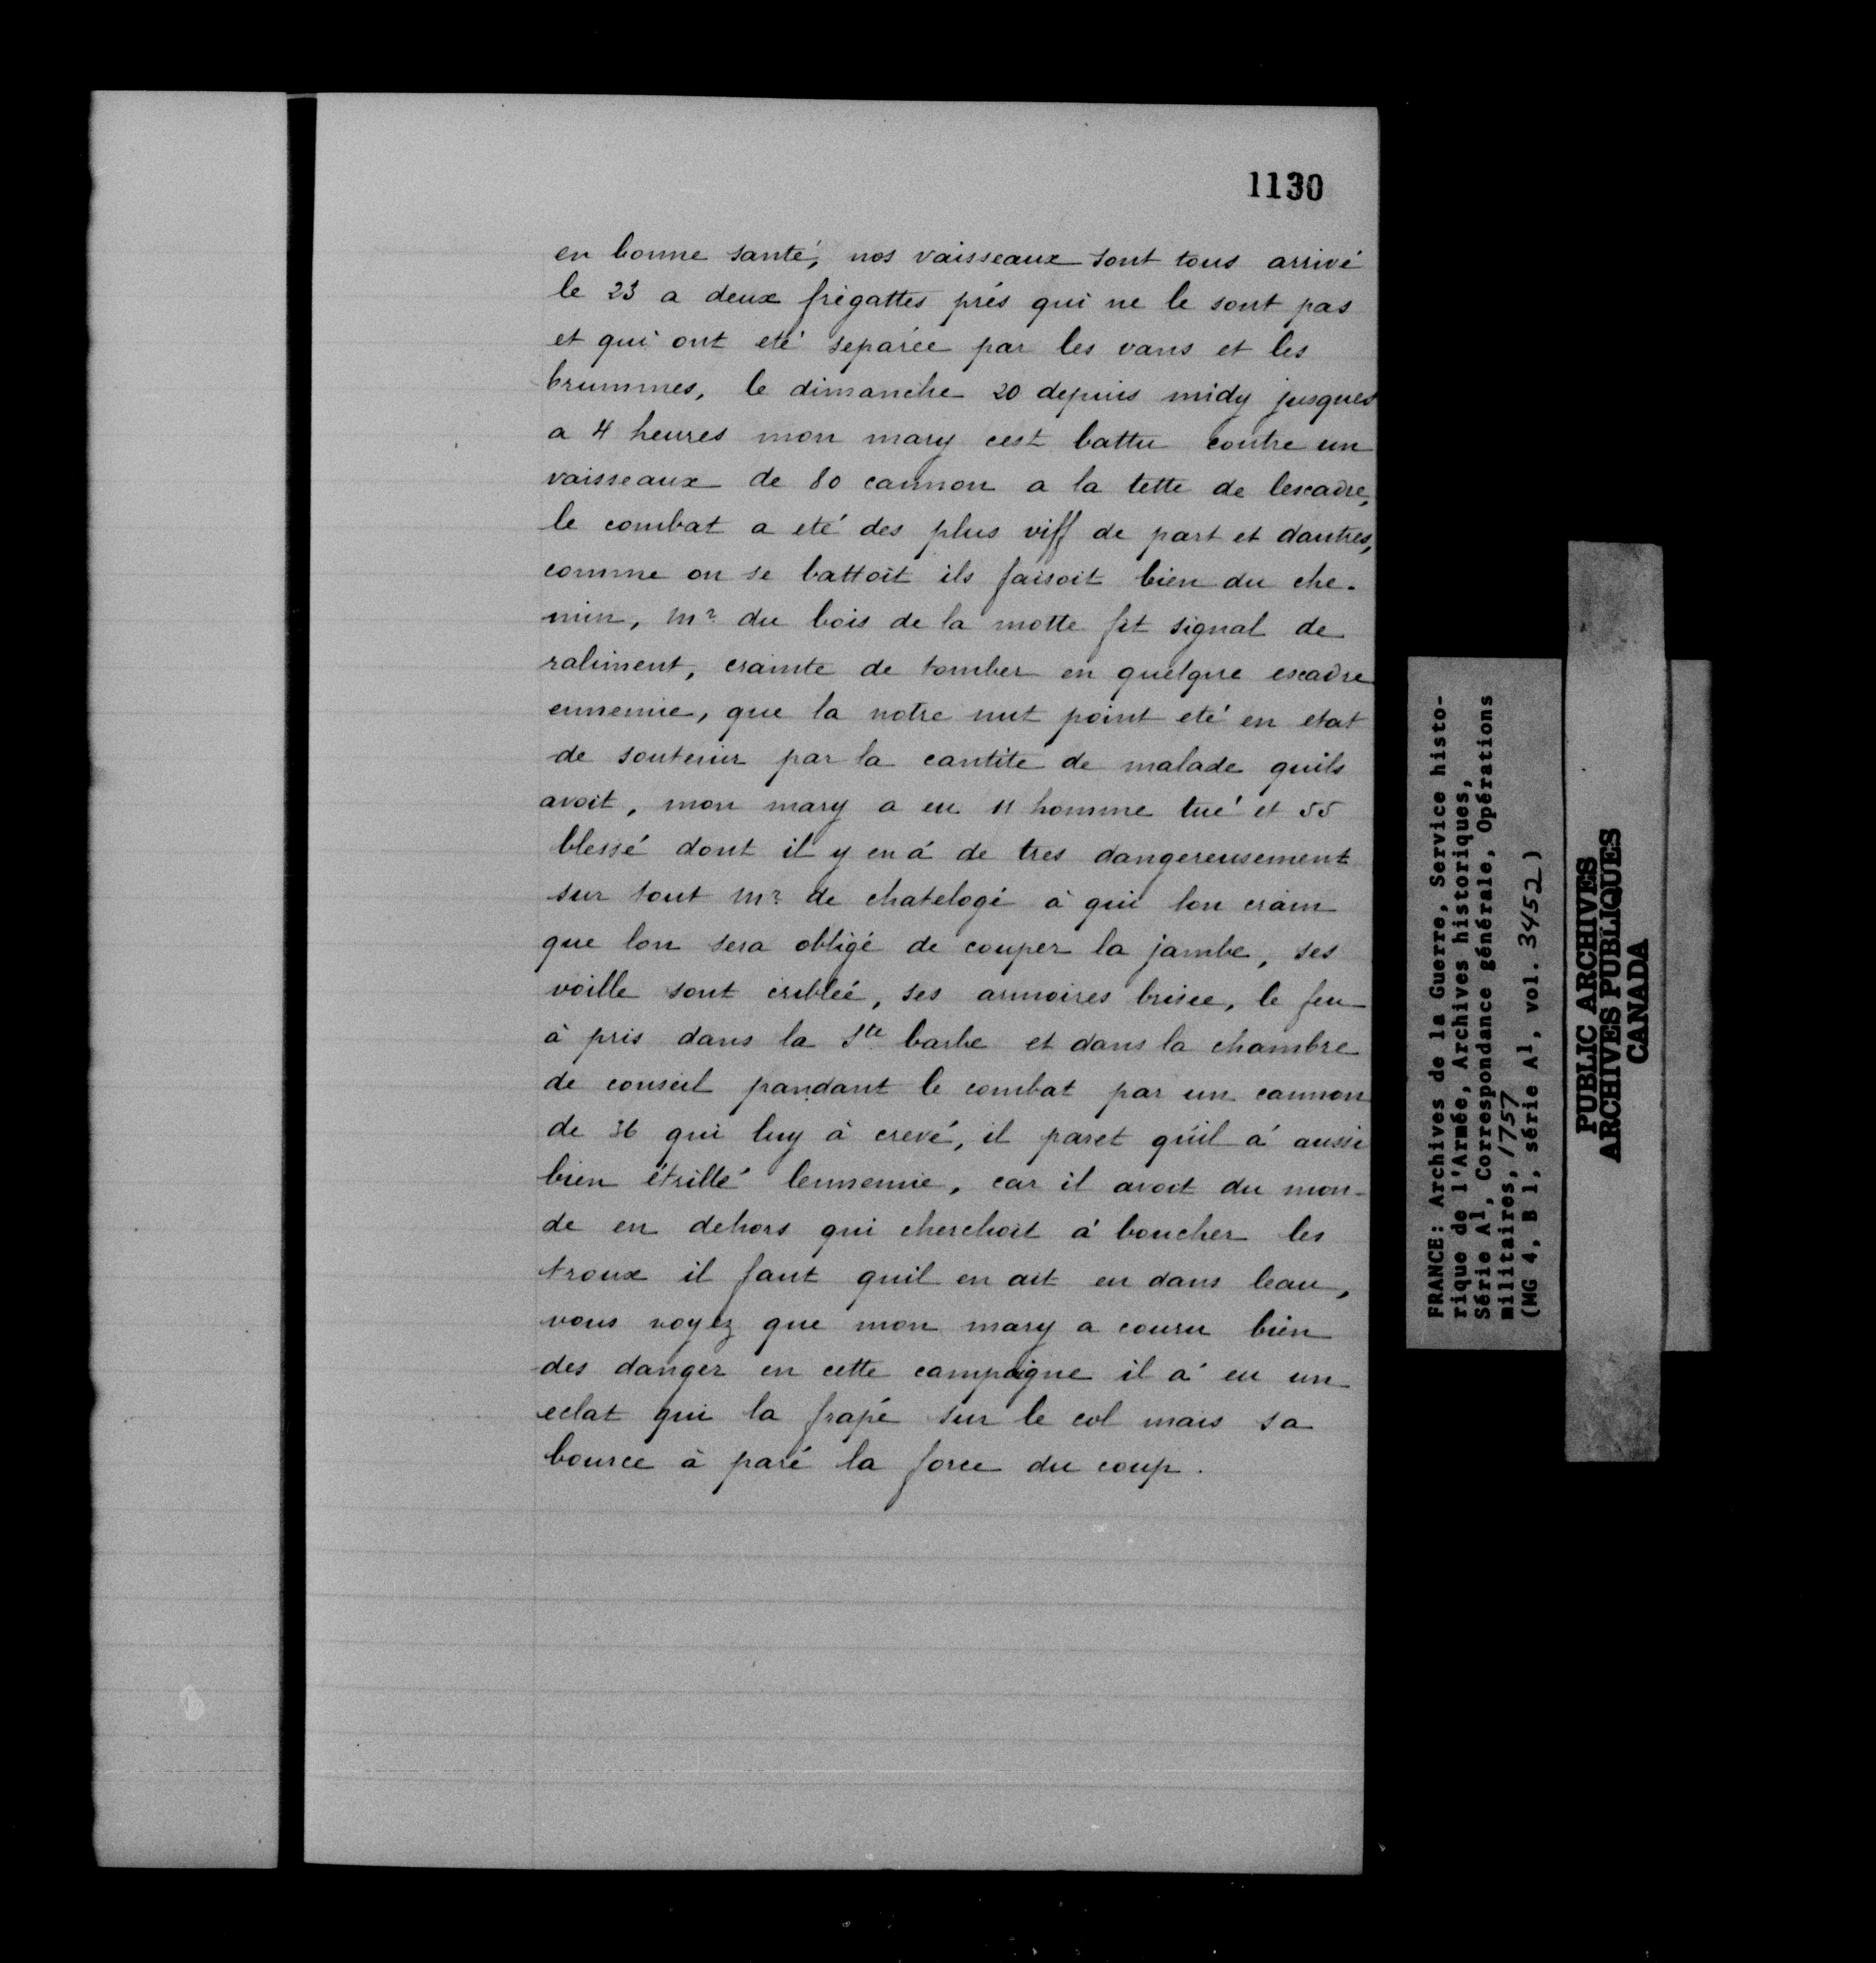 1130
en bonne santé, nos vaisseaux sont tous arrivé
le 23 a deux frégattes prés qui ne le sont pas
et qui ont eté separée par les vans et les
brummes, le dimanche 20 depuis midy jusques
a 4 heures mon mary cest battu contre un
vaisseaux de 80 cannon a la tette de lescadre,
le combat a eté des plus viff de part et dautres,
comme on se battoit ils faisoit bien du che-
min, Mr. du bois de la motte fit signal de
raliment, crainte de tomber en quelque escadre
ennemie, que la notre nut point eté en etat
de soutenir par la cantité de malade quils
avoit, mon mary a eu 11 homme tué et 55
blessé dont il y en á de tres dangereusement
sur tout Mr. de chatelogé à qui lon crain
que lon sera obligé de couper la jambe, ses
voille sont criblée, ses armoires brisee, le feu
à pris dans la Ste barbe et dans la chambre
de conseil pandant le combat par un cannon
de 36 qui luy à crevé, il paret qu'il á aussi
bien étrillé lennemie, car il avoit du mon-
de en dehors qui cherchoit á boucher les
troux il faut quil en ait eu dans leau,
vous voyez que mon mary a couru bien
des danger en cette campaigne il á eu un
eclat qui la frapé sur le col mais sa
bource à paré la force du coup.
FRANCE: Archives de la Guerre, Service histo-
rique de l'Armée, Archives historiques,
Série A1, Correspondance générale, Opérations
militaires, 1757
(MG 4, B 1, série A1, vol. 3452)
PUBLIC ARCHIVES
ARCHIVES PUBLIQUES
CANADA